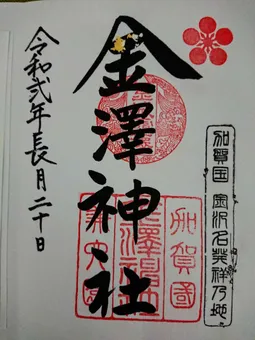 加賀国 金沢名発祥乃地
金澤神社
加賀國
金澤神社
令和弐年長月二十日